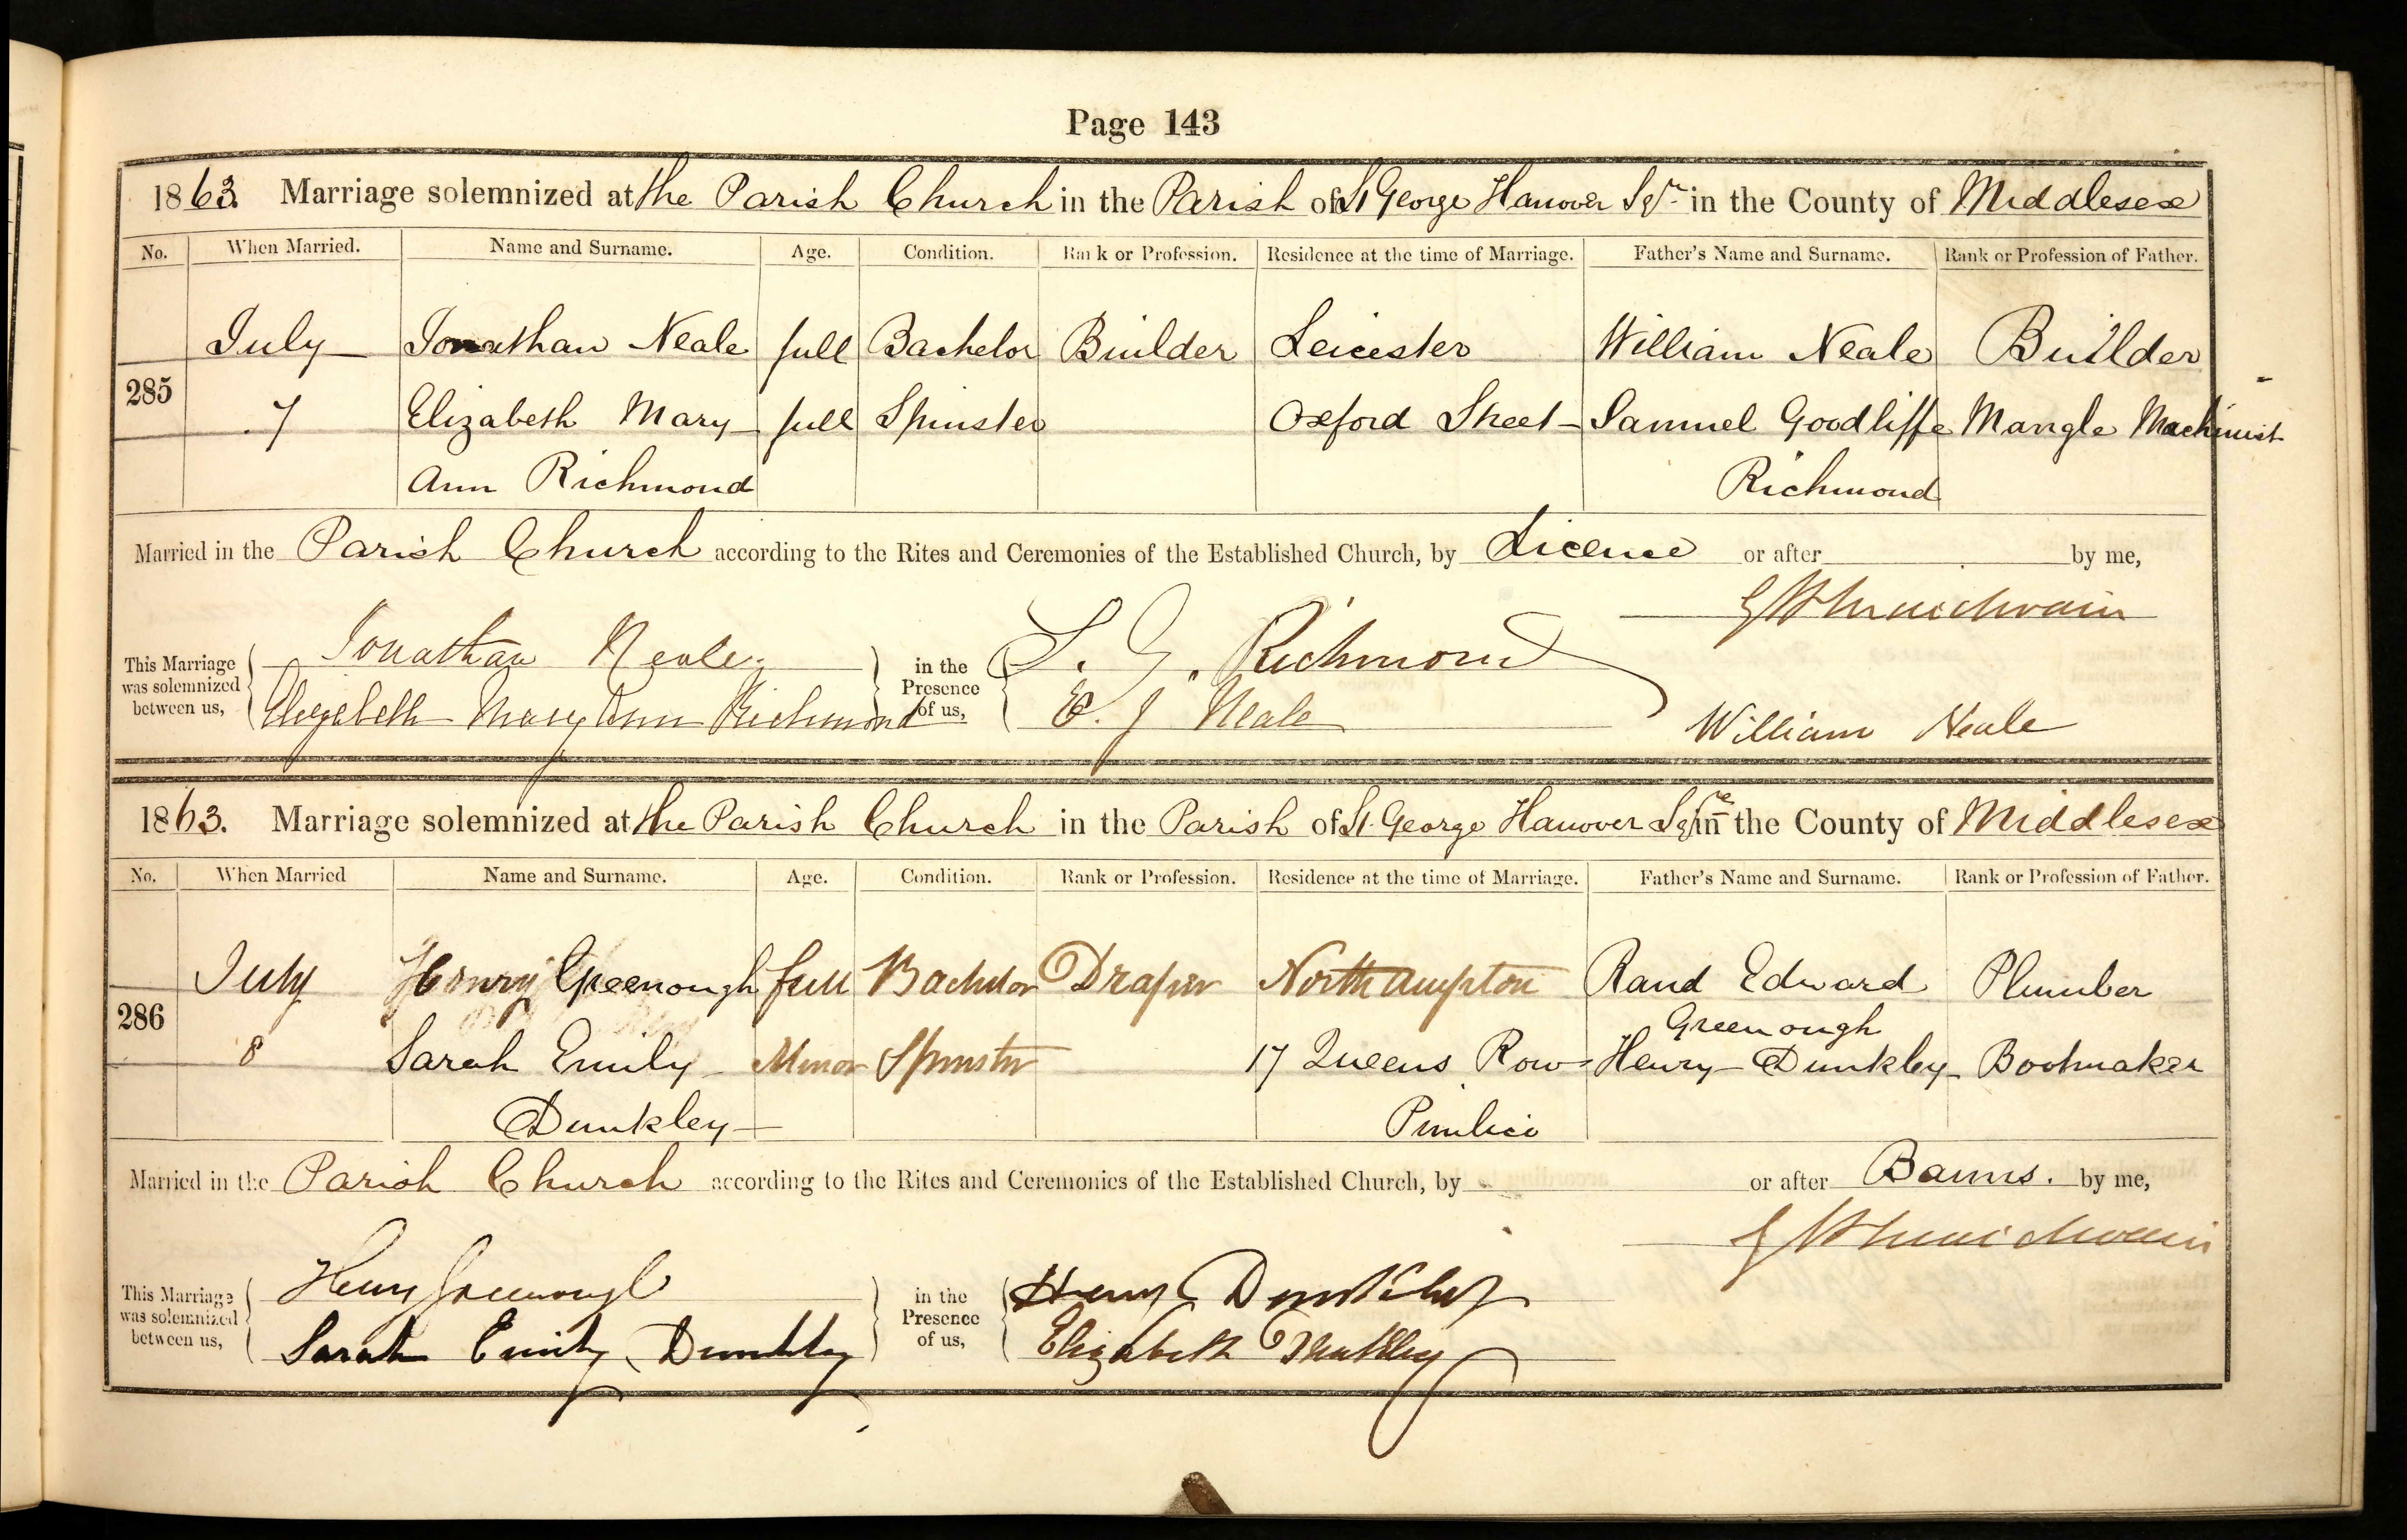 Page 143
1863. Marriage solemnized at the Parish Church in the Parish of St George Hanover Sqre in the County of Middlesex
No. When Married. Name and Surname. Age. Condition. Rank or Profession. Residence at the time of Marriage. Father's Name and Surname. Rank or Profession of Father.
July Jonathan Neale full Bachelor Builder Leicester William Neale Builder
285
7 Elizabeth Mary full Spinster Oxford Street Samuel Goodliffe Mangle Machinist
Ann Richmond Richmond
Married in the Parish Church according to the Rites and Ceremonies of the Established Church, by Licence or after by me,
This Marriage was solemnized between us,
Jonathan Neale
Elizabeth Mary Ann Richmond
in the Presence of us,
S. G. Richmond
E. J Neale
William Neale
1863. Marriage solemnized at the Parish Church in the Parish of St. George Hanover Sqre in the County of Middlesex
No. When Married Name and Surname. Age. Condition. Rank or Profession. Residence at the time of Marriage. Father's Name and Surname. Rank or Profession of Father.
July Henry Greenough full Bachelor Draper Northampton Rand Edward Plumber
Greenough
286
8 Sarah Emily Minor Spinster 17 Queens Row Henry Dunkley Bootmaker
Dunkley Pimlico
Married in the Parish Church according to the Rites and Ceremonies of the Established Church, by or after Banns. by me,
This Marriage was solemnized between us,
Henry Greenough
Sarah Emily Dunkley
in the Presence of us,
Henry Dunkley
Elizabeth Dunkley